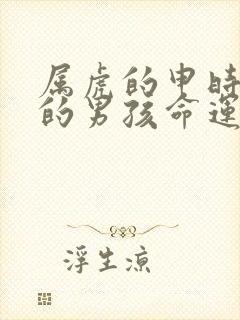 属虎的申时
的男孩命运
浮生凉